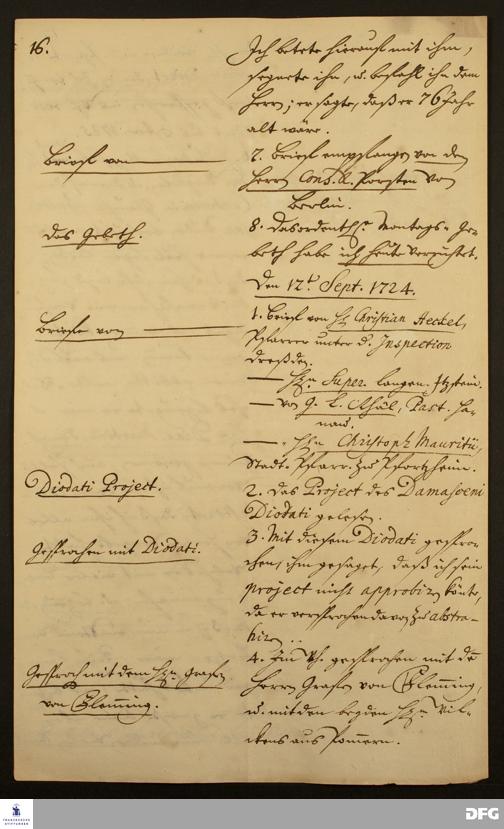 16.
Ich betete hierauf mit ihm,
segnete ihn, u. befahl ihn dem
Herrn; er sagte, daß er 76 Jahr
alt wäre.
Briefe von
7. Briefe empfangen von dem
Herrn Cons. R. Porsten von
Berlin.
Das Gebeth.
8. Das ordentl. Montags-Ge-
beth habe ich heute verrichtet.
Den 12t. Sept. 1724.
Briefe von
1. Brief von H. Christian Heckel,
Pfarrer unter d. Inspection
Dreßden.
— Hn. Super. Langen, Itzstein.
— von G. L. Past. Ha-
nau.
— Hn Christoph Mauritii,
Stadt-Pfarr. zu Pfortzheim.
Diodati Project.
2. Das Project des Damasceni
Diodati gelesen.
Gesprochen mit Diodati.
3. Mit diesem Diodati gespro-
chen, ihm gesaget, daß ich sein
project nicht approbiren könte,
da er versprochen davon zu abstra-
hiren.
Gesproch mit dem Hn. Grafen
von Flemming.
4. gesprochen mit de
Herrn Grafen von Flemming,
u. mit den beyden Hn. Wil-
ckens aus Pommern.
FRANCKESCHE STIFTUNGEN
DFG